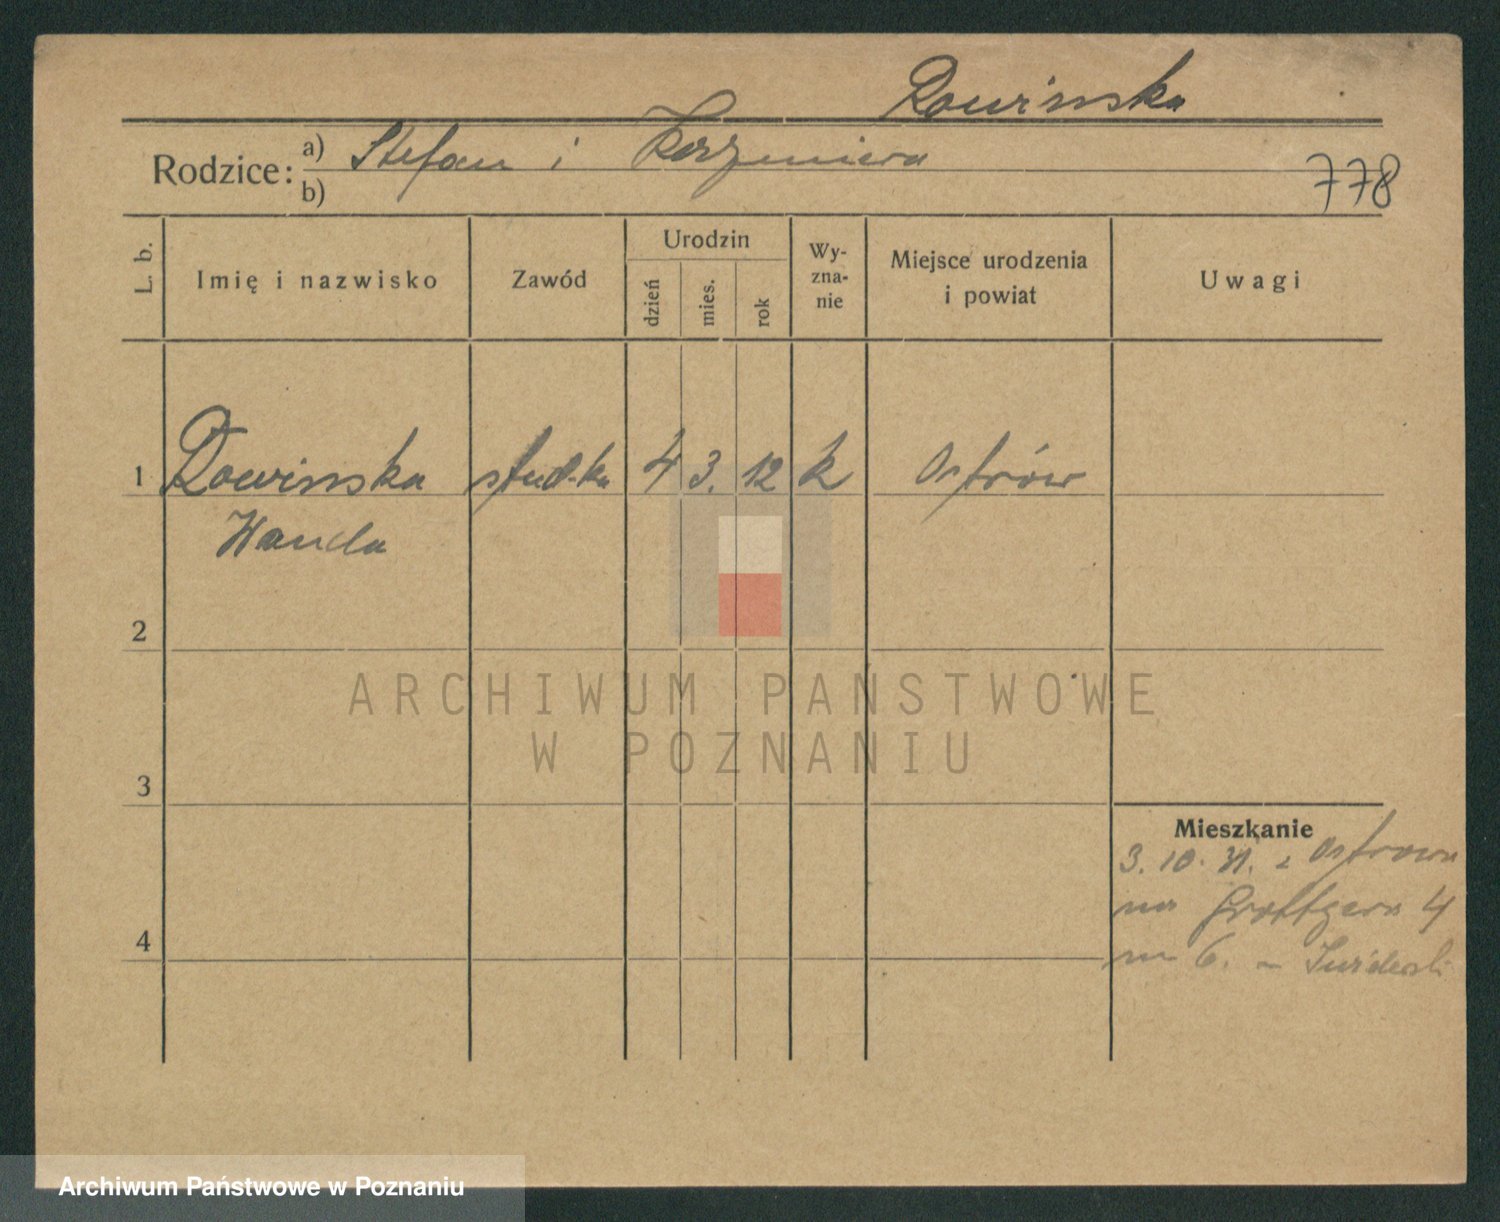 Rowinska
Rodzice: a) Stefan i
b)
778
L. b.
Imię i nazwisko
Zawód
Urodzin
dzień
mies.
rok
Wy-
zna-
nie
Miejsce urodzenia
i powiat
Uwagi
1 Rowinska stud-ka 4 3. 12 k Ostrów
Wanda
2
ARCHIWUM PAŃSTWOWE
W POZNANIU
3
Mieszkanie
3. 10. z Ostrowa
na Grottgera 4
m 6. -
4
Archiwum Państwowe w Poznaniu